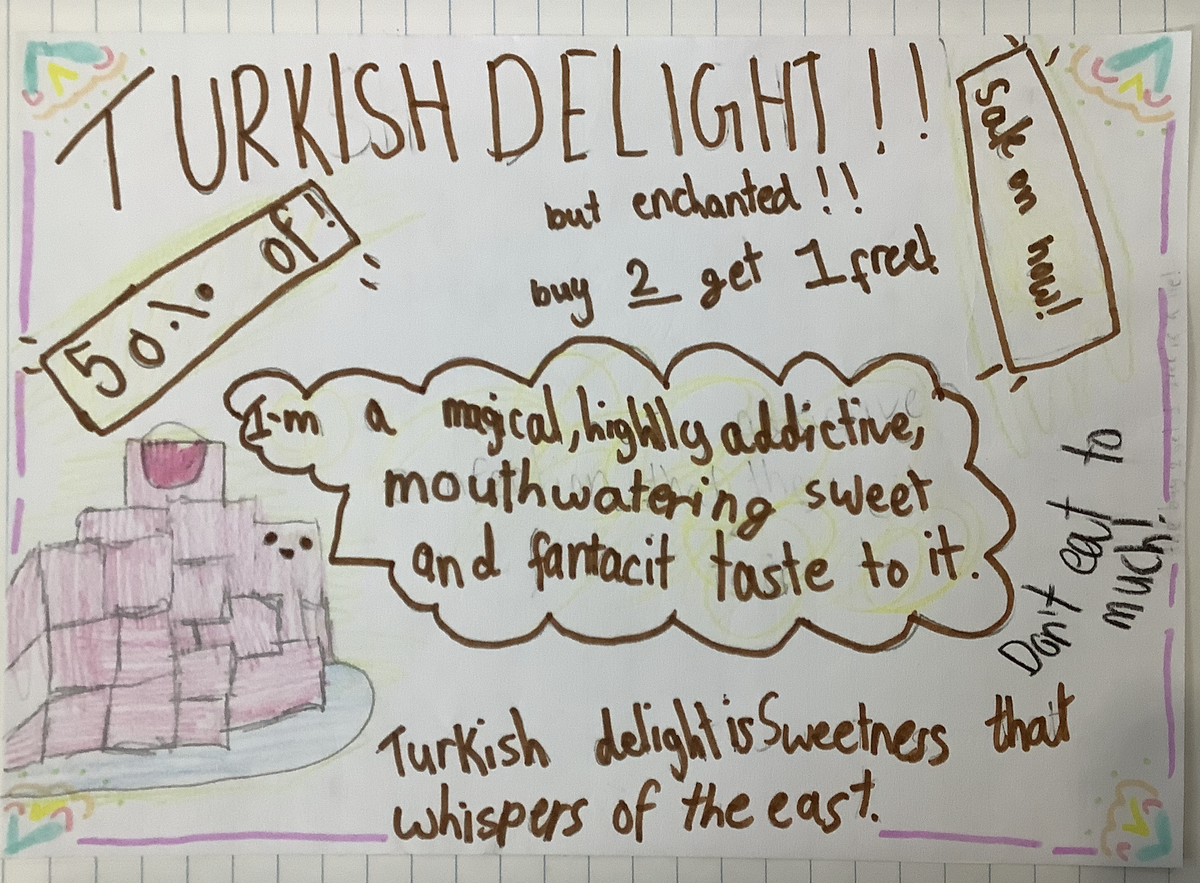 TURKISH DELIGHT!!
but enchanted!!
buy 2 get 1 free!
Sale on now!
50% of!
I-m a magical, highlly addictive,
mouthwatering sweet
and fantacit taste to it.
Don't eat to
much!
Turkish delight is Sweetness that
whispers of the east.